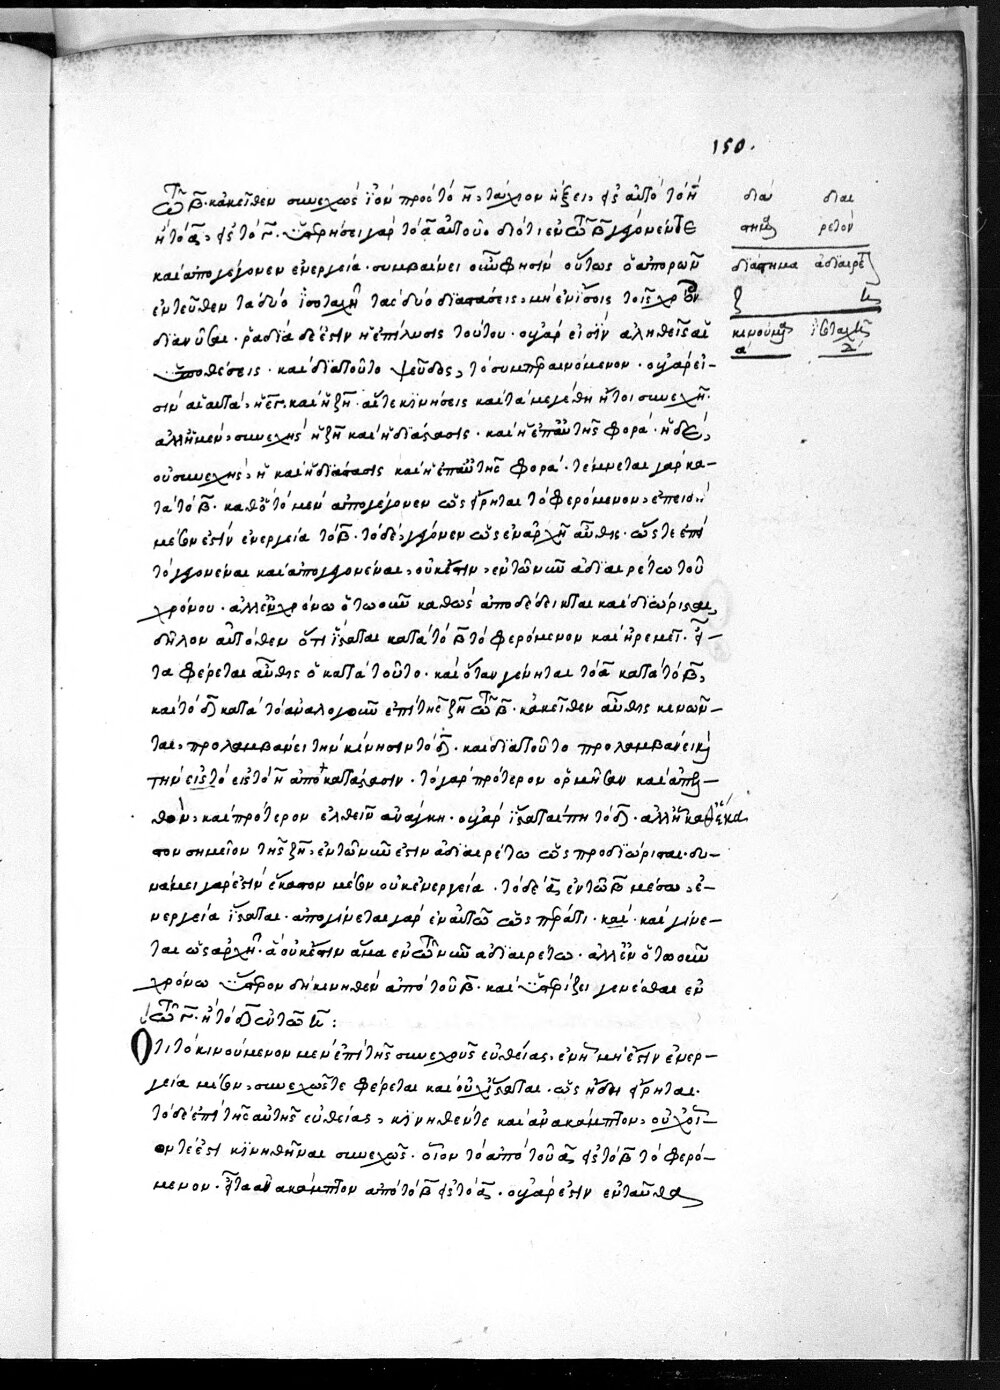 150.
τῶ β. κἀκεῖθεν συνεχῶς ἰὸν πρὸς τὸ η, τάχιον ἥξει, εἰς αὐτὸ τὸ η
ἢ τὸ α, εἰς τὸ γ. ὑστερήσει γὰρ τὸ α αὐτοῦ διότι ἐν τῶ β γέγονέν τε
καὶ ἀπογέγονεν ἐνεργεία. συμβαίνει οὖν φησὶν οὕτως ὁ ἀπορῶν
ἐντεῦθεν τὰ δύο ἰσοταχῆ τὰς δύο διαστάσεις, μὴ ἐν ἴσοις τοῖς χρόνοις
διανῦσαι. ῥαδία δέ ἐστιν ἡ ἐπίλυσις τούτου. οὐ γάρ εἰσιν ἀληθεῖς αἱ
ὑποθέσεις. καὶ διατοῦτο ψεῦδος, τὸ συμπεραινόμενον. οὐ γάρ εἰ-
σιν αἱ αὐταὶ, ἡ εγ. καὶ ἡ ζη. αἵ τε κινήσεις καὶ τὰ μεγέθη ἤτοι συνεχῆ.
ἀλλ' ἡ μὲν, συνεχὴς ἡ ζη καὶ ἡ διάστασις. καὶ ἡ ἐπ' αὐτῆς φορά. ἡ δὲ,
οὐ συνεχὴς, ἢ καὶ ἡ διάστασις καὶ ἡ ἐπ' αὐτῆς φορά. τέμνεται γὰρ κα-
τὰ τὸ β. καθ' ὃ τὸ μὲν ἀπογέγονεν ὡς εἴρηται τὸ φερόμενον, ἐπειδὴ
μέσον ἐστὶν ἐνεργεία τὸ β. τὸ δὲ, γέγονεν ὡς ἐν ἀρχῆ αὖθις. ὥστε ἐπὶ
τὸ γεγονέναι καὶ ἀπογεγονέναι, οὐκ ἔστιν, ἐν τῶ νῦν ἀδιαιρέτω τοῦ
χρόνου. ἀλλ' ἐν χρόνω ὁτωοῦν καθὼς ἀποδέδεικται καὶ διώρισται,
δῆλον αὐτόθεν ὅτι ἵσταται κατὰ τὸ β τὸ φερόμενον καὶ ἠρεμεῖ. εἶ-
τα φέρεται αὖθις ὁ κατὰ τοῦτο. καὶ ὅταν γένηται τὸ α κατὰ τὸ β,
καὶ τὸ δ κατὰ τὸ ἀνάλογον ἐπὶ τῆς ζη τῶ β. κἀκεῖθεν αὖθις κινῶν-
ται, προλαμβάνει τὴν κίνησιν τὸ δ. καὶ διατοῦτο προλαμβάνει καὶ
τὴν εἰς τὸ εἰς τὸ η ἀποκατάστασιν. τὸ γὰρ πρότερον ὁρμῆσαν καὶ ἀπελ-
θὸν, καὶ πρότερον ἐλθεῖν ἀνάγκη. οὐ γὰρ ἵσταταί πη τὸ δ. ἀλλ' ἡ καθ' ἕκα
στον σημεῖον τῆς ζη, ἐν τῶ νῦν ἐστιν ἀδιαιρέτω ὡς προδιώρισται. δυ-
νάμει γάρ ἐστιν ἕκαστον μέσον οὐκ ἐνεργεία. τὸ δὲ α, ἐν τῶ β μέσω, ἐ-
νεργεία ἵσταται. ἀπογίνεται γὰρ ἐν αὐτῶ ὡς πέρατι. καὶ. καὶ γίνε-
ται ὡς ἀρχῆ. ἃ οὐκ ἔστιν ἅμα ἐν τῶ νῦν ἀδιαιρέτω. ἀλλ' ἐν ὁτωοῦν
χρόνω ὕστερον δὴ κινηθὲν ἀπὸ τοῦ β. καὶ ὑστερίζει γενέσθαι ἐν
τῶ γ. ἢ τὸ δ ἐν τῶ η:
Ὅτι τὸ κινούμενον μὲν ἐπὶ τῆς συνεχοῦς εὐθείας, ἐν ἧ μή ἐστιν ἐνερ-
γεία μέσον, συνεχῶς τε φέρεται καὶ οὐχ ἵσταται. ὡς ἤδη εἴρηται.
τὸ δὲ ἐπὶ τῆς αὐτῆς εὐθείας, κινηθέν τε καὶ ἀνακάμπτον, οὐχ οἷ-
όν τέ ἐστι κινηθῆναι συνεχῶς. οἷον τὸ ἀπὸ τοῦ α εἰς τὸ β τὸ φερό-
μενον. εἶτα ἀνακάμπτον ἀπὸ τὸ β εἰς τὸ α. οὐ γάρ ἐστιν ἐνταῦθα
διάστημα ἀδιαίρετ